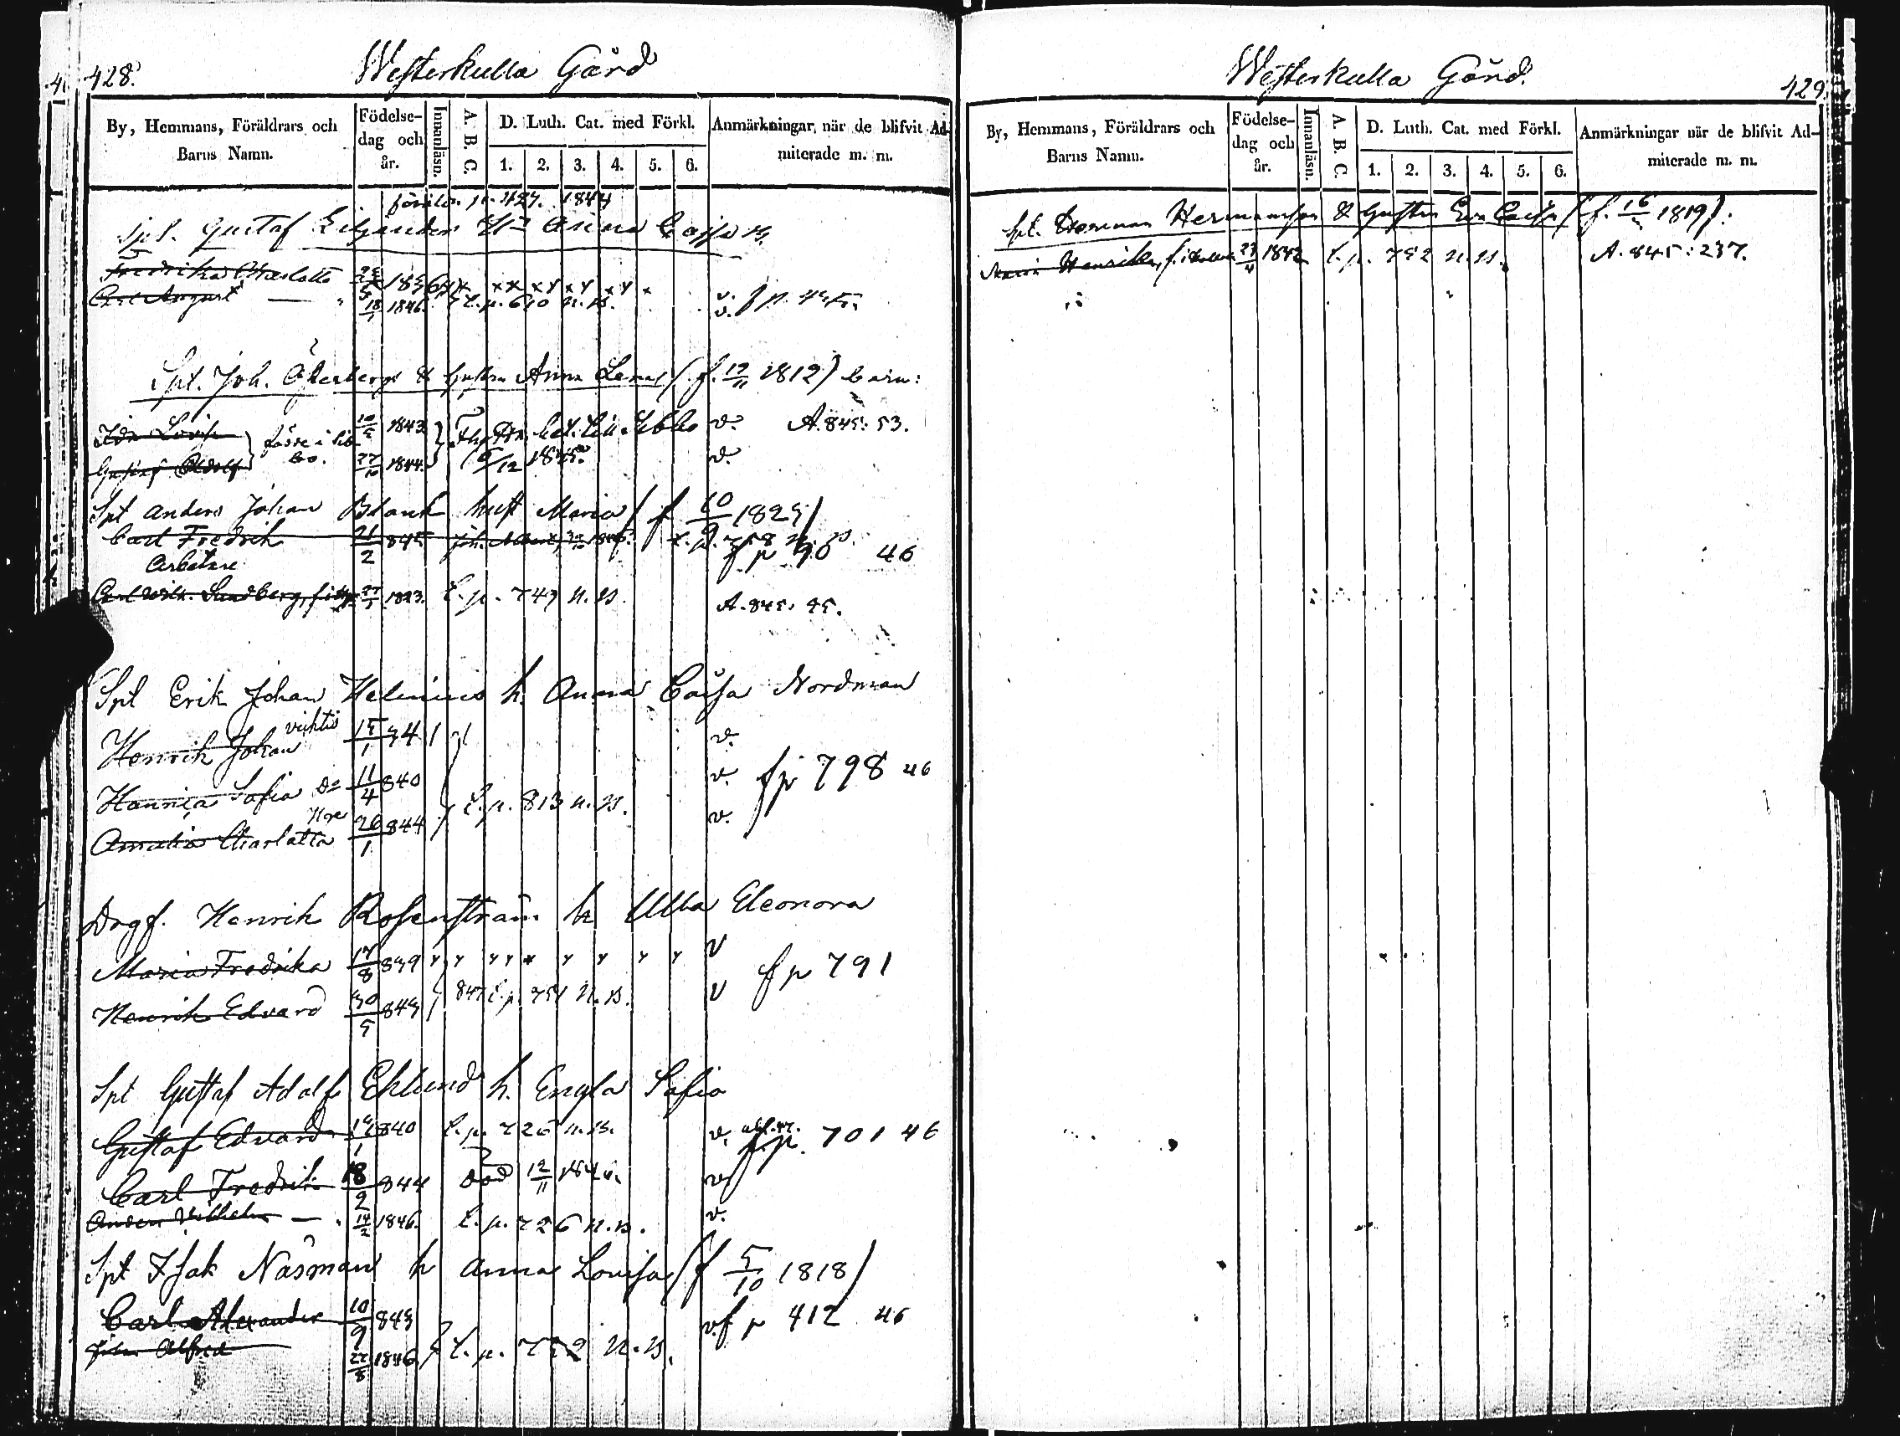 428.
Westerkulla Gård
By, Hemmans, Föräldrars och Barns Namn.
Födelse-dag och år.
Innanläsn.
A. B. C.
D. Luth. Cat. med Förkl.
1. 2. 3. 4. 5. 6.
Anmärkningar när de blifvit Admiterade m. m.
p. 427. 1844
Spt. Gustaf Anna Cajsa
Fredrika Charlotta 1836
Carl August — 18/ 1846. t. p. 610 n. B. v.
Spt. Joh. Österberg & hustru Anna Lena (f. 12/11 1812) barn:
Ida Lovisa 1843 v. A. 845: 53.
Gustaf Adolf 27/10 1844. 6/12 1845. v.
Spt Anders Johan Blank hust Maria (f 10/9 1825)
Carl Fredrik 21/2 845 f p 90 46
Arbetare
Carl Wilh. Sundberg, 1823. t. p. 749 n. B. A. 845: 95.
Spt Erik Johan Helenius h. Anna Caisa Nordman
Henrik Johan vichtis 15/1 34 v.
Hanna Sofia Do 11/4 840 v. fp 798 46
Amalia Charlotta 26/1 844 t. p. 813 n. B. v.
Dagf. Henrik Rosenström h Ulla Eleonora
Maria Fredrika 17/8 839 v
Henrik Edvard 30/5 843 847 t. p. 751 n. B. v fp 791
Spt Gustaf Adolf Eklund h. Engla Sofia
Gustaf Edvard 14/1 840 t. p. 726 n. B. v. fp. 701 46
Carl Fredrik 18/2 844 död 12/11 184 v
Anders Vilhelm — 14/2 1846. t. p. 726 n. B. v.
Spt Isak Näsman h Anna Lovisa (f 5/10 1818)
Carl Alexander 10/9 843 v. f p 412 46
Johan Alfred 22/8 1846 t. p. 752 n. B.
Westerkulla Gård.
429.
By, Hemmans, Föräldrars och Barns Namn.
Födelse-dag och år.
Innanläsn.
A. B. C.
D. Luth. Cat. med Förkl.
1. 2. 3. 4. 5. 6.
Anmärkningar när de blifvit Admiterade m. m.
Spt. Herman Hermansson & hustru Eva Caisa (f. 16/ 1819):
Maria Henrika, 23/4 1842 t. p. 752 n. B. A. 845: 237.